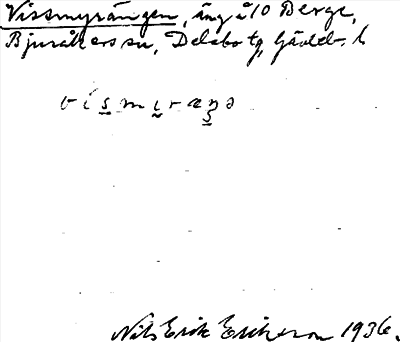 Vissmyrängen, äng å 10 Berge,
Bjuråkers sn, Delsbo tg, Gävleb. l
vismıraŋə
Nils Erik Eriksson 1936.